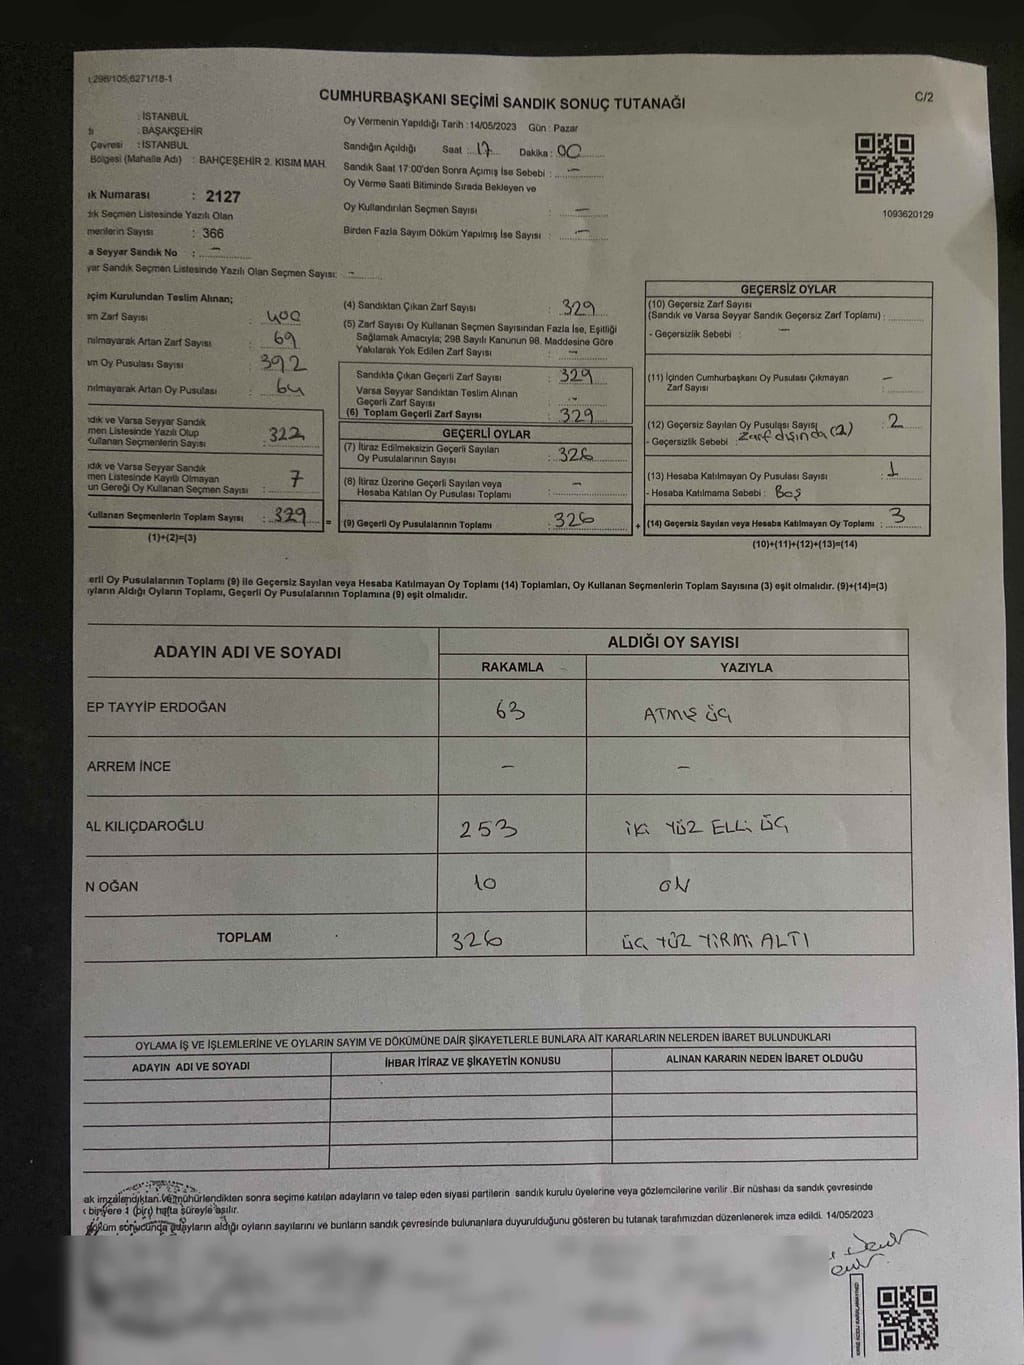 298/105;6271/18-1
C/2
CUMHURBAŞKANI SEÇİMİ SANDIK SONUÇ TUTANAĞI
: İSTANBUL
: BAŞAKŞEHİR
Çevresi : İSTANBUL
Bölgesi (Mahalle Adı) : BAHÇEŞEHİR 2. KISIM MAH.
ık Numarası : 2127
dık Seçmen Listesinde Yazılı Olan
menlerin Sayısı : 366
a Seyyar Sandık No : –
yar Sandık Seçmen Listesinde Yazılı Olan Seçmen Sayısı: –
Oy Vermenin Yapıldığı Tarih : 14/05/2023 Gün : Pazar
Sandığın Açıldığı Saat : 17 Dakika : 00
Sandık Saat 17:00'den Sonra Açımış İse Sebebi : –
Oy Verme Saati Bitiminde Sırada Bekleyen ve
Oy Kullandırılan Seçmen Sayısı : –
Birden Fazla Sayım Döküm Yapılmış İse Sayısı : –
1093620129
eçim Kurulundan Teslim Alınan;
am Zarf Sayısı : 400
anılmayarak Artan Zarf Sayısı : 69
am Oy Pusulası Sayısı : 392
anılmayarak Artan Oy Pusulası : 64
ndık ve Varsa Seyyar Sandık
men Listesinde Yazılı Olup
Kullanan Seçmenlerin Sayısı : 322
ndık ve Varsa Seyyar Sandık
men Listesinde Kayıtlı Olmayan
un Gereği Oy Kullanan Seçmen Sayısı : 7
Kullanan Seçmenlerin Toplam Sayısı : 329 =
(1)+(2)=(3)
(4) Sandıktan Çıkan Zarf Sayısı : 329
(5) Zarf Sayısı Oy Kullanan Seçmen Sayısından Fazla İse, Eşitliği
Sağlamak Amacıyla; 298 Sayılı Kanunun 98. Maddesine Göre
Yakılarak Yok Edilen Zarf Sayısı : –
Sandıkta Çıkan Geçerli Zarf Sayısı : 329
Varsa Seyyar Sandıktan Teslim Alınan
Geçerli Zarf Sayısı : –
(6) Toplam Geçerli Zarf Sayısı : 329
GEÇERLİ OYLAR
(7) İtiraz Edilmeksizin Geçerli Sayılan
Oy Pusulalarının Sayısı : 326
(8) İtiraz Üzerine Geçerli Sayılan veya
Hesaba Katılan Oy Pusulası Toplamı : –
(9) Geçerli Oy Pusulalarının Toplamı : 326 +
GEÇERSİZ OYLAR
(10) Geçersiz Zarf Sayısı
(Sandık ve Varsa Seyyar Sandık Geçersiz Zarf Toplamı) :
- Geçersizlik Sebebi : –
(11) İçinden Cumhurbaşkanı Oy Pusulası Çıkmayan
Zarf Sayısı : –
(12) Geçersiz Sayılan Oy Pusulası Sayısı : 2
- Geçersizlik Sebebi : Zarf dışında (2)
(13) Hesaba Katılmayan Oy Pusulası Sayısı : 1
- Hesaba Katılmama Sebebi : Boş
(14) Geçersiz Sayılan veya Hesaba Katılmayan Oy Toplamı : 3
(10)+(11)+(12)+(13)=(14)
erli Oy Pusulalarının Toplamı (9) ile Geçersiz Sayılan veya Hesaba Katılmayan Oy Toplamı (14) Toplamları, Oy Kullanan Seçmenlerin Toplam Sayısına (3) eşit olmalıdır. (9)+(14)=(3)
yların Aldığı Oyların Toplamı, Geçerli Oy Pusulalarının Toplamına (9) eşit olmalıdır.
ADAYIN ADI VE SOYADI
ALDIĞI OY SAYISI
RAKAMLA YAZIYLA
EP TAYYİP ERDOĞAN 63 ATMIŞ ÜÇ
ARREM İNCE – –
AL KILIÇDAROĞLU 253 İKİ YÜZ ELLİ ÜÇ
N OĞAN 10 ON
TOPLAM 326 ÜÇ YÜZ YİRMİ ALTI
OYLAMA İŞ VE İŞLEMLERİNE VE OYLARIN SAYIM VE DÖKÜMÜNE DAİR ŞİKAYETLERLE BUNLARA AİT KARARLARIN NELERDEN İBARET BULUNDUKLARI
ADAYIN ADI VE SOYADI İHBAR İTİRAZ VE ŞİKAYETİN KONUSU ALINAN KARARIN NEDEN İBARET OLDUĞU
ak imzalandıktan ve mühürlendikten sonra seçime katılan adayların ve talep eden siyasi partilerin sandık kurulu üyelerine veya gözlemcilerine verilir .Bir nüshası da sandık çevresinde
bir yere 1 (bir) hafta süreyle asılır.
döküm sonucunda adayların aldığı oyların sayılarını ve bunların sandık çevresinde bulunanlara duyurulduğunu gösteren bu tutanak tarafımızdan düzenlenerek imza edildi. 14/05/2023